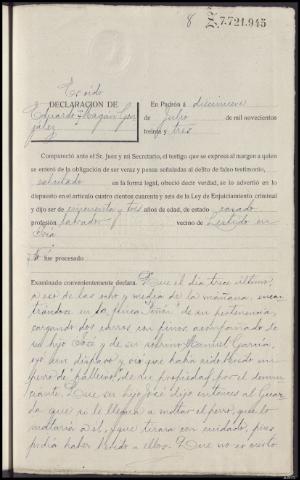 8 Z.7.721.945
DECLARACION DE
Eduardo Magán Gon
zález
En Padrón á diecinueve
de Julio de mil novecientos
treinta y tres
Compareció ante el Sr. Juez y mi Secretario, el testigo que se expresa al margen a quien
se enteró de la obligación de ser veraz y penas señaladas al delito de falso testimonio,
en la forma legal, ofreció decir verdad, se lo advertió en lo
dispuesto en el artículo cuatro cientos cuarenta y seis de la Ley de Enjuiciamiento criminal
y dijo ser de cincuenta y tres años de edad, de estado casado
profesión labrador vecino de Lestido en
No fue procesado
Examinado convenientemente declara. Que el día tres último,
a eso de las ocho y media de la mañana, encon
trándose en la finca de su pertenencia,
cargando dos carros con pinos acompañado de
su hijo José y de su sobrino Manuel García,
oyó un disparo y vió que había sido muerto un
perro de "palleiro", de su propiedad, por el denun
ciante. Que su hijo José dijo entonces al Guar
da que si le llegaba a matar el perro, que lo
mataría a él, que tirara con cuidado, pues
podía haber herido a ellos. Que no es cierto